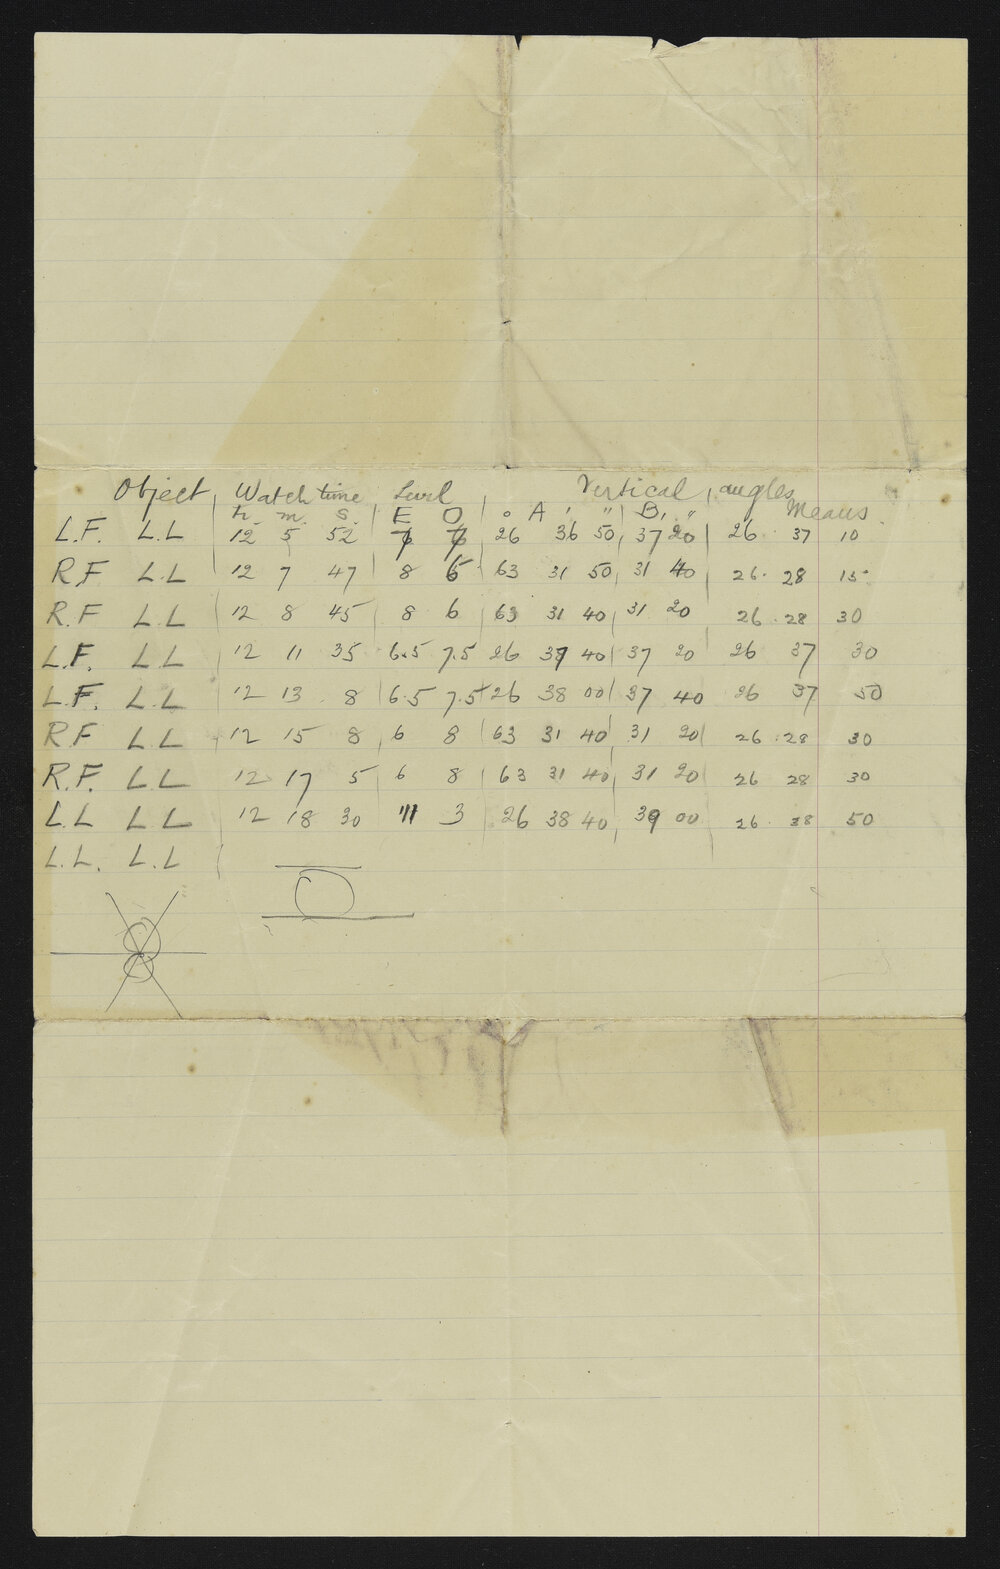 Object Watch time Level Vertical angles
h. m. s. E O ° A ' " B ' " Means
L.F. L.L 12 5 52 7 7 26 36 50 37 20 26 37 10
R.F L.L 12 7 47 8 6 63 31 50 31 40 26. 28 15
R.F L.L 12 8 45 8 6 63 31 40 31 20 26. 28 30
L.F. L.L 12 11 35 6.5 7.5 26 37 40 37 20 26 37 30
L.F. L.L 12 13 8 6.5 7.5 26 38 00 37 40 26 37 50
R.F L L 12 15 8 6 8 63 31 40 31 20 26 .28 30
R.F. L L 12 17 5 6 8 63 31 40 31 20 26 28 30
L.L L L 12 18 30 11 3 26 38 40 39 00 26. 38 50
L.L. L.L